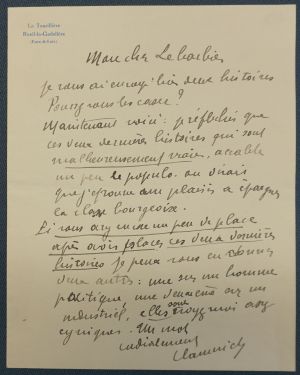 La Tourillière
Rueil-la-Gadelière
Mon cher Lebarbier
je vous ai envoyé hier deux histoires
Pouvez vous les caser ?
Maintenant voici : que
ces deux dernières histoires qui sont
malheureusement vraies, accable
un peu le populo. on dirait
que j'éprouve un plaisir à épargner
la classe bourgeoise.
Si vous avez encore un peu de place
après avoir placer ces deux dernières
histoires je peux vous en donner
deux autres : une sur un homme
politique, une deuxième sur un
industriel, elles sont assez
cyniques. Un mot
cordialement
Vlaminck